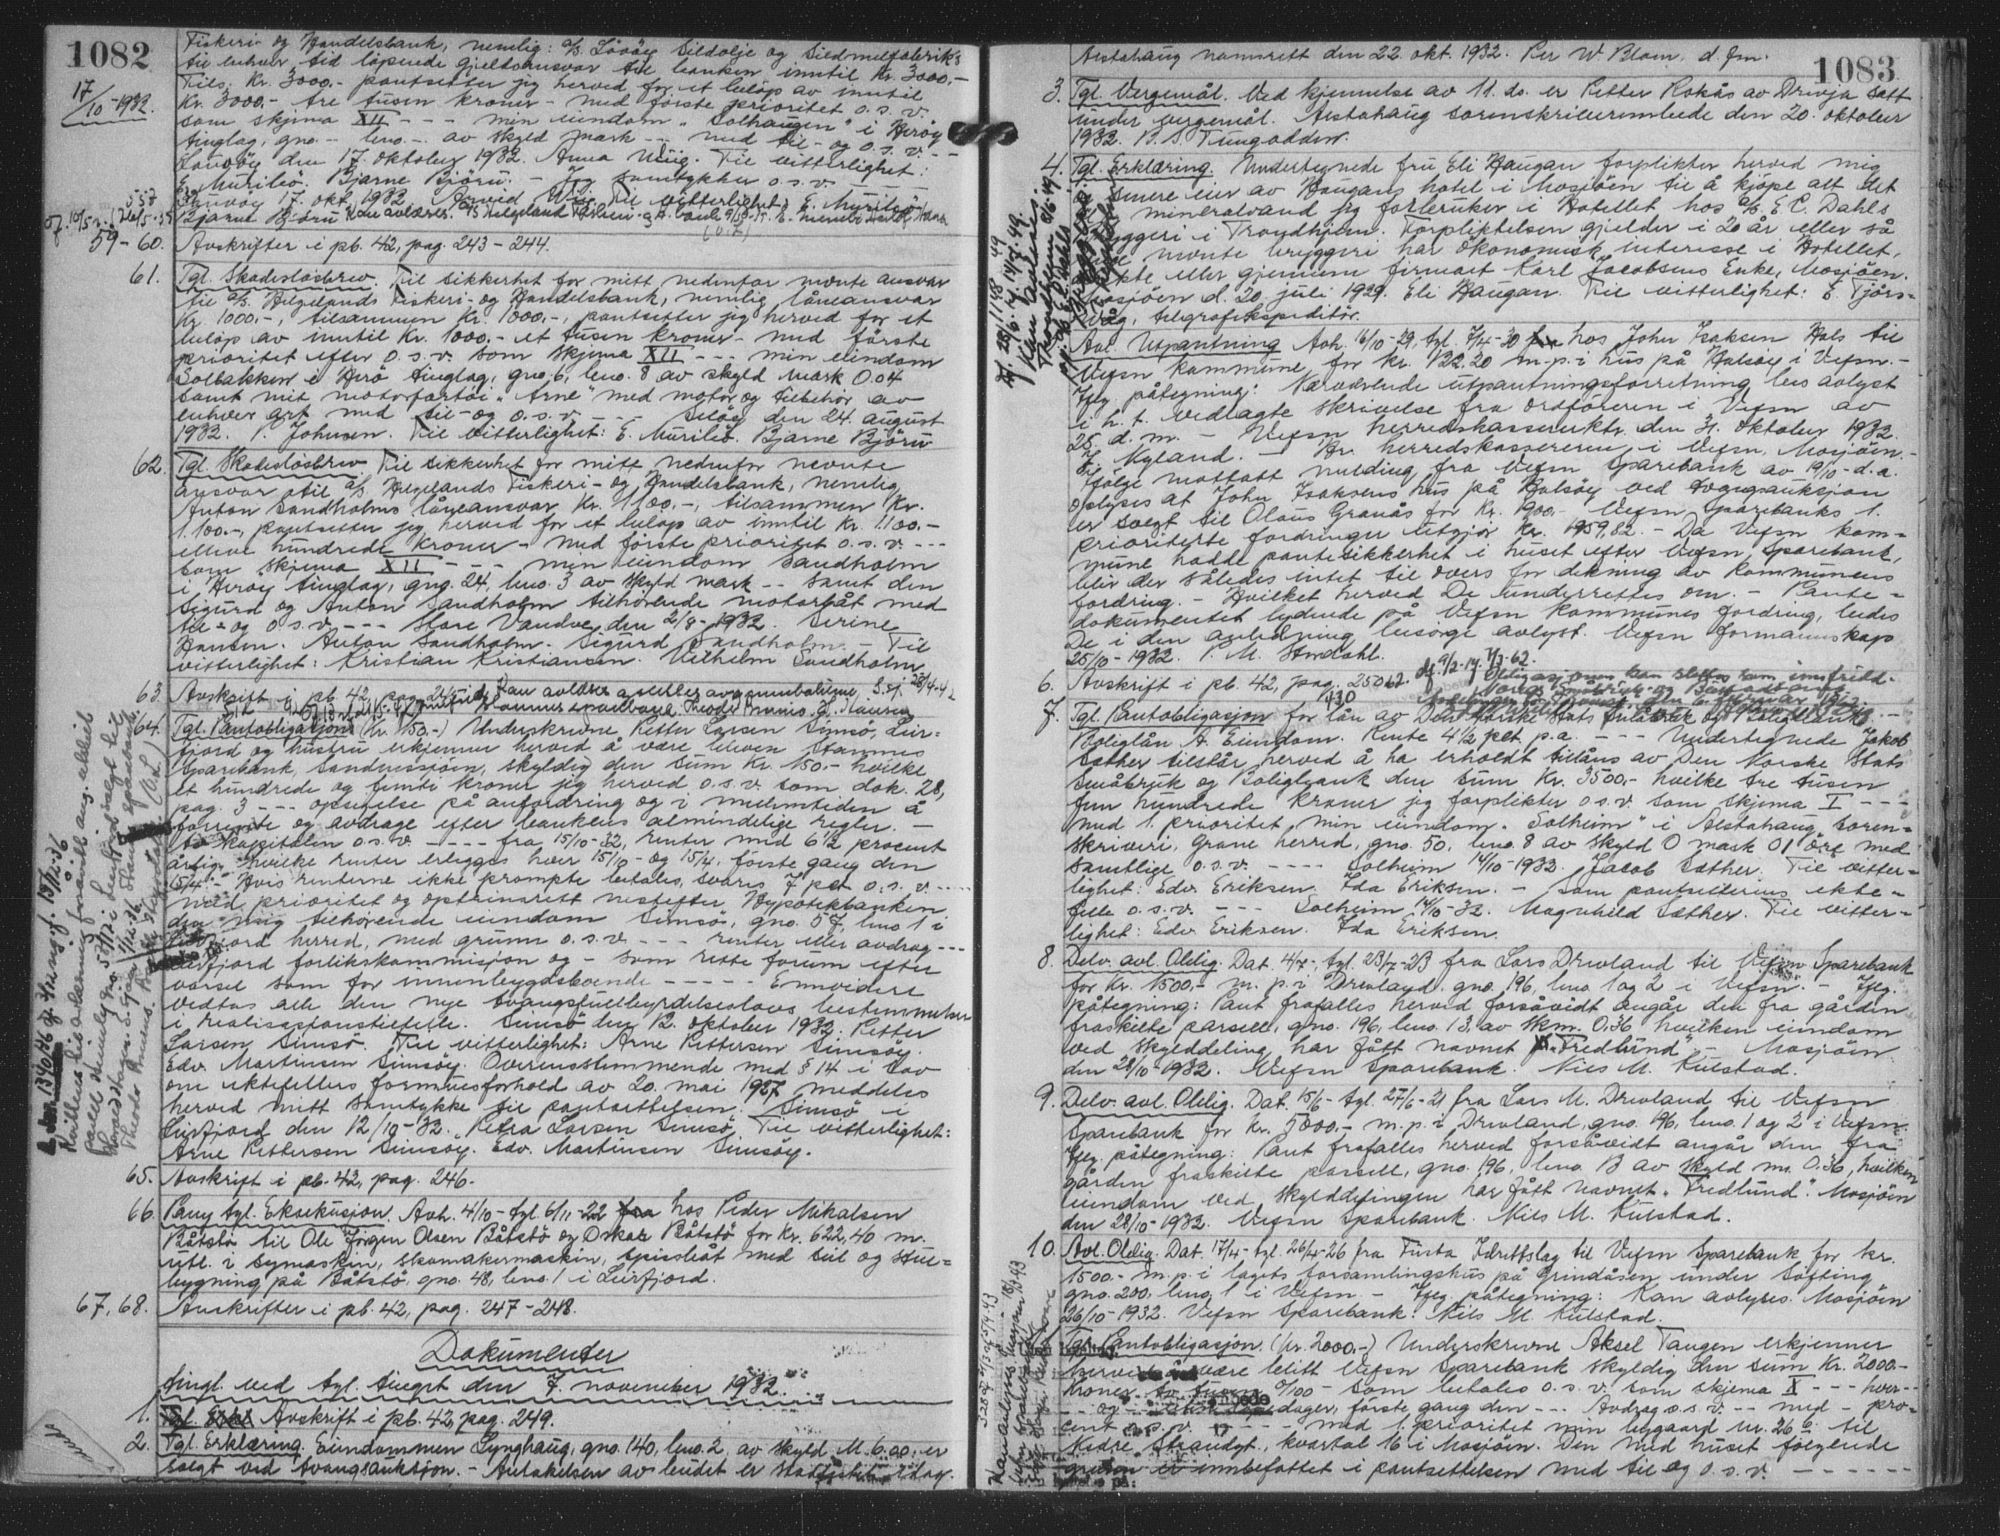 1082
17/10-1932.
Fiskeri- og Handelsbank, nemlig: a/s Sildolje og Sildmelfabrikk
til enhver tid løpende gjeldsansvar til banken inntil kr. 3000.-
Tils. kr. 3000.- pantsetter jeg herved for et beløp av inntil
kr. 3000.- tre tusen kroner - med første prioritet o.s.v.
som skjema XII - - - min eiendom "Solhaugen" i Herøy
tinglag, gno. - bno. - av skyld mark - - med til- og o.s.v. - -
den 17. oktober 1932. Anna Wiig. Til vitterlighet:
E. Murilsö. Bjarne Björu. - Jeg samtykker o.s.v.
17. okt. 1932 Til vitterlighet: E. Murilsö
Bjarne Björu
59-60. Avskrifter i pb. 42, pag. 243-244.
61. Tgl. Skadeslösbrev. Til sikkerhet for mitt nedenfor nevnte ansvar
til a/s. Helgelands Fiskeri- og Handelsbank, nemlig låneansvar
Kr. 1000.-, tilsammen Kr. 1000.-, pantsetter jeg herved for et
beløp av inntil Kr. 1000.- et tusen kroner - med første
prioritet efter o.s.v. som skjema XII - - - min eiendom
Solbakken i Herö tinglag, gno. 6, bno. 8 av skyld mark 0.04
samt mit motorfartöi "Arne" med motor og tilbehör av
enhver art med til- og o.s.v. - - - den 24. august
1932. P. Johnsen. Til vitterlighet: E. Murilsö. Bjarne Björu
62. Tgl. Skadeslösbrev Til sikkerhet for mitt nedenfor nevnte
ansvar til a/s Helgelands Fiskeri- og Handelsbank, nemlig
Anton Sandholms låneansvar Kr. 1100.-, tilsammen Kr.
1.100.-, pantsetter jeg herved for et beløp av inntil Kr. 1100.-
elleve hundrede kroner - med første prioritet o.s.v. - - -
som skjema XII - - - min eiendom Sandholm
i Heröy tinglag, gno. 24, bno. 3 av skyld mark - - samt den
Sigurd og Anton Sandholm tilhörende motorbåt med
til- og o.s.v. - - - Store Vandve, den 2/8-1932. Serine
Hansen. Anton Sandholm. Sigurd Sandholm. - Til
vitterlighet: Kristian Kristiansen. Vilhelm Sandholm.
63. Avskrift i pb. 42, pag. 245.
64. Tgl. Pantobligasjon (kr. 150.-) Underskrevne Petter Larsen Simsö, Leir-
fjord og hustru erkjenner herved å være bleven Stamnes
Sparebank, Sandnessjöen, skyldig den sum Kr. 150.- hvilke
et hundrede og femti kroner jeg herved o.s.v. som dok. 28,
pag. 3 - - - opsigelse på anfordring og i mellemtiden å
forrente og avdrage efter bankens almindelige regler. -
Av kapitalen o.s.v. - - - fra 15/10-32, renter med 6 1/2 procent
årlig hvilke renter erlegges hver 15/10- og 15/4, første gang den
15/4. - Hvis renterne ikke prompte betales, svares 7 pct o.s.v. - - - -
med prioritet og optrinsrett nestefter Hypotekbanken
den mig tilhörende eiendom Simsö, gno. 57, bno 1 i
Leirfjord herred, med grunn o.s.v. - - - renter eller avdrag - - -
Leirfjord forlikskommisjon og - som rette forum efter
varsel som for innenbygdsboende - - - - - Ennvidere
vedtas alle den nye tvangsfuldbyrdelseslovs bestemmelser
i realisasjonstilfelle. Simsö den 12. oktober 1932. Petter
Larsen Simsö. Til vitterlighet: Arne Pettersen Simsöy.
Edv. Martinsen Simsöy. Overensstemmende med § 14 i Lov
om ektefellers formuesforhold av 20. mai 1927 meddeles
herved mitt samtykke til pantsettelsen. Simsö i
Leirfjord den 12/10-32. Petra Larsen Simsö. Til vitterlighet:
Arne Pettersen Simsöy. Edv. Martinsen Simsöy.
65. Avskrift i pb. 42, pag. 246.
66. Tgl. Eksekusjon. Avh. 4/10- tgl 6/11-22 hos Peder Mikalsen
Båtstö til Ole Jörgen Olsen Båtstö og Oskar Båtstö for kr. 622,40 m.
utl. i symaskin, skomakermaskin, spissbåt med seil og stue-
bygning på Båtstö, gno. 48, bno. 1 i Leirfjord.
67, 68. Avskrifter i pb. 42, pag. 247-248.
Dokumenter
tingl. ved tgl. tinget den 7. november 1932.
1. Avskrift i pb. 42, pag. 249.
2. Tgl. Erklæring. Eiendommen Lynghaug, gno. 140, bno. 2, av skyld M. 6.00 er
solgt ved tvangsauktion. - Antakelsen av budet er idag.
1083
Alstahaug namsrett den 22. okt. 1932. Per W Blom, d. fm.
3. Tgl. Vergemål. Ved kjennelse av 11. ds. er Petter Rokås av Drevja satt
under vergemål. Alstahaug sorenskriverembede den 20. oktober
1932. B. S. Tungodden.
4. Tgl. Erklæring. Undertegnede fru Eli Haugan forplikter herved mig
senere eier av Haugans hotel i Mosjöen til å kjöpe alt det
mineralvand jeg forbruker i hotellet hos a/s. E. C. Dahls
bryggeri i Trondhjem. Forpliktelsen gjelder i 20 år eller så
nevnte bryggeri har ökonomisk interesse i hotellet,
eller gjennem firmaet Karl Jacobsens Enke, Mosjöen.
Mosjöen d. 20. juli 1929. Eli Haugan. Til vitterlighet: E. Tjörs-
våg, telegrafekspeditör.
Avl. Utpantning Avh. 16/10-29, tgl. 7/4-30 hos John Isaksen Hals til
Vefsn kommune for kr. 122.20 m. p. i hus på Halsöy i Vefsn. -
Jfg. påtegning: Nærværende utpantningsforretning bes avlyst
i h. t. vedlagte skrivelse fra ordföreren i Vefsn av
25. d. m. - Vefsn herredskassererktr. den 31. oktober 1932.
Nyland. - Hr. herredskassereren i Vefsn, Mosjöen. -
Ifölge mottatt melding fra Vefsn Sparebank av 19/10- d.a.
oplyses at John Isaksens hus på Halsöy ved tvangsauksjon
er solgt til Olaus Granås for kr. 1900.- Vefsn Sparebanks 1.
prioriterte fordringer utgjör kr. 1959,82. - Da Vefsn kom-
mune hadde pantesikkerhet i huset efter Vefsn Sparebank,
blir der således intet til overs for dekning av kommunens
fordring. - Hvilket herved De underrettes om. - Pante-
dokumentet lydende på Vefsn kommunes fordring, bedes
De i den anledning besörge avlyst. Vefsn formannskap
25/10-1932. P. M. Stordahl.
6. Avskrift i pb. 42, pag. 250.
7. Tgl. Pantobligasjon for lån av Den Norske Stats Småbruk og Boligbank. -
Boliglån A. Eiendom. Rente 4 1/2 pct p.a. - - - Undertegnede Jakob
Sæther tilstår herved å ha erholdt tillåns av Den Norske Stats
Småbruk og Boligbank den sum kr. 3500.- hvilke tre tusen
fem hundrede kroner jeg forplikter o.s.v. som skjema I - - -
med 1. prioritet min eiendom "Solheim" i Alstahaug soren-
skriveri, Grane herred, gno. 50, bno. 8 av skyld 0 mark 01 öre med
samtlige o.s.v. - - - - Solheim 14/10-1932. Jacob Sæther. Til vitter-
lighet: Edv. Eriksen. Ida Eriksen. - Som pantsetterens ekte-
felle o.s.v. - - - Solheim 14/10-32. Magnhild Sæther. Til vitter-
lighet: Edv. Eriksen. Ida Eriksen.
8. Delv. avl. Oblig. Dat. 4/7-, tgl. 23/7-23 fra Lars Drevland til Vefsn Sparebank
for kr. 1500.- m. p. i Drevland, gno. 196, bno. 1 og 2 i Vefsn. - Jfg.
påtegning: Pant frafalles herved forsåvidt angår den fra gården
fraskilte parsell, gno. 196, bno. 13 av skm. 0.36 hvilken eiendom
ved skylddeling har fått navnet "Fredlund" - Mosjöen
den 28/10-1932. Vefsn Sparebank. Nils M. Kulstad.
9. Delv. avl. Oblig. Dat. 15/6- tgl. 27/6-21 fra Lars M. Drevland til Vefsn
Sparebank for kr. 5000.- m. p. i Drevland, gno. 196, bno. 1 og 2 i Vefsn.
Jfg. påtegning: Pant frafalles herved forsåvidt angår den fra
gården fraskilte parsell, gno. 196, bno. 13 av skyld m. 0.36, hvilken
eiendom ved skylddelingen har fått navnet "Fredlund". Mosjöen
den 28/10-1932. Vefsn Sparebank. Nils M. Kulstad.
10. Avl. Oblig. Dat. 17/4- tgl. 26/4-26 fra Fusta Idrettslag til Vefsn Sparebank for kr.
1500.- m. p. i lagets forsamlingshus på Grindåsen under Söfting
gno. 200, bno. 1 i Vefsn. - Jfg. påtegning: Kan avlyses. Mosjöen
26/10-1932. Vefsn Sparebank. Nils M. Kulstad.
Tgl. Pantobligasjon (kr. 2000.-) Underskrevne Aksel Tangen erkjenner
herved å være blitt Vefsn Sparebank skyldig den sum kr. 2000.-
kroner to tusen 0/100 - som betales o.s.v. som skjema X - - - hver - -
dager, første gang den - - - Avdrag o.s.v. - - - med - pro-
cent o.s.v. - - - med 1. prioritet min bygård nr. 26 til
Nedre Strandgt., kvartal 16 i Mosjöen. Den med huset fölgende
grunn er innbefattet i pantsettelsen med til og o.s.v. - - - - -